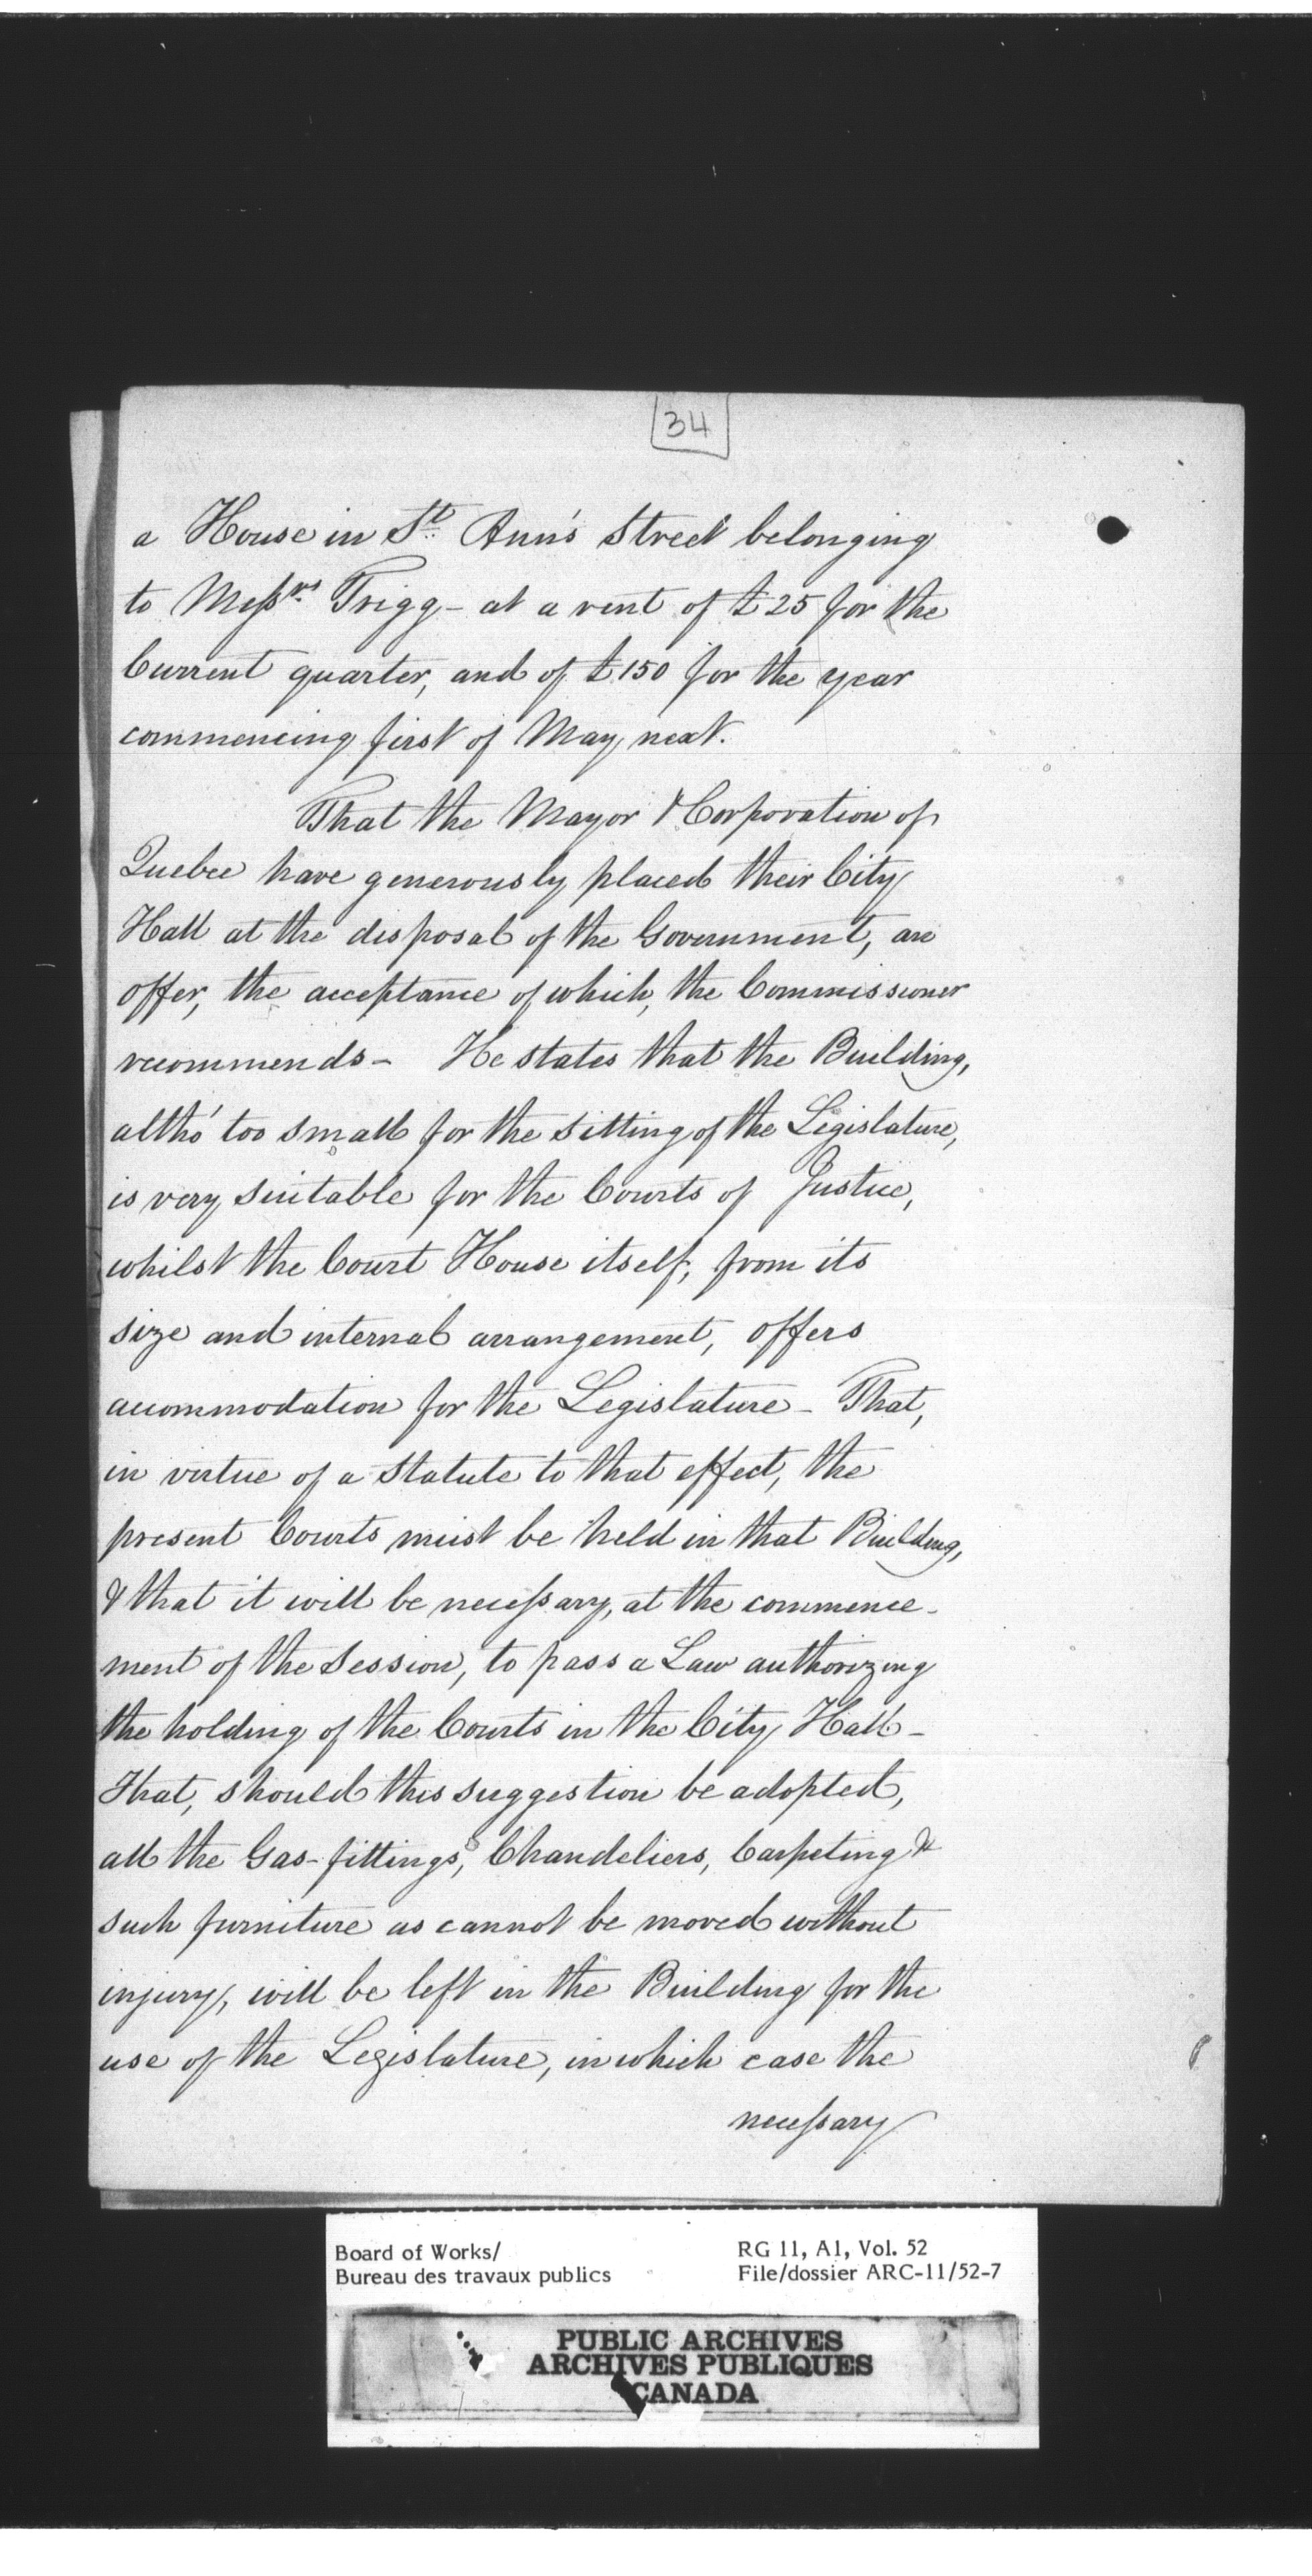 34
a House in St. Ann's Street belonging
to Messrs. Trigg - at a rent of £25 for the
Current quarter, and of £150 for the year
commencing first of May next.
That the Mayor & Corporation of
Quebec have generously placed their City
Hall at the disposal of the Government, an
offer, the acceptance of which, the Commissioner
recommends - He states that the Building,
altho' too small for the sitting of the Legislature,
is very suitable for the Courts of Justice,
whilst the Court House itself, from its
size and internal arrangement, offers
accommodation for the Legislature - That,
in virtue of a Statute to that effect, the
present Courts must be held in that Building,
& that it will be necessary, at the commence-
ment of the Session, to pass a Law authorizing
the holding of the Courts in the City Hall -
That, should this suggestion be adopted,
all the Gas-fittings, Chandeliers, Carpeting &
such furniture as cannot be moved without
injury, will be left in the Building for the
use of the Legislature, in which case the
necessary
Board of Works/
Bureau des travaux publics
RG 11, A1, Vol. 52
File/dossier ARC-11/52-7
PUBLIC ARCHIVES
ARCHIVES PUBLIQUES
CANADA